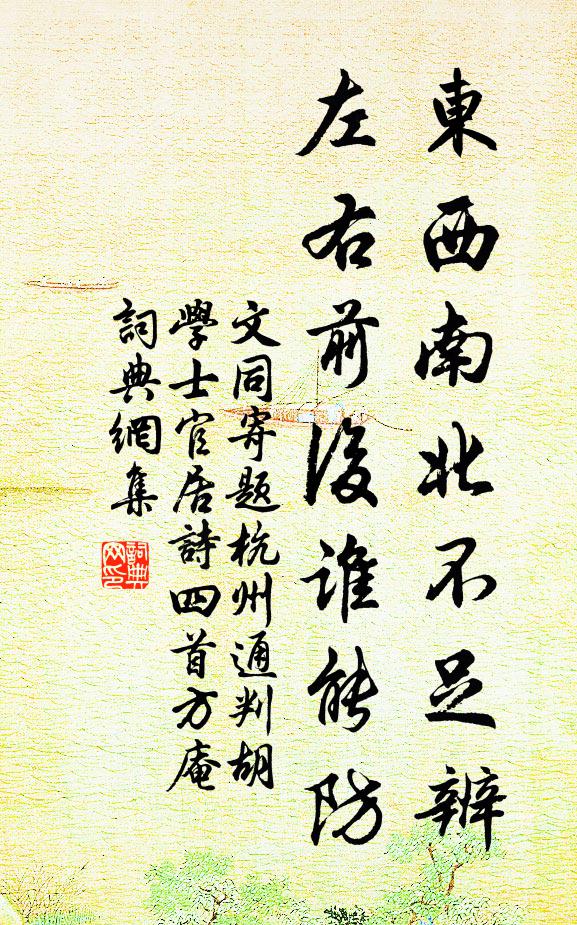 東西南北不足辨
左右前後誰能防
文同寄題杭州通判胡
學士官居詩四首方庵
詞典網集
詞典
网印